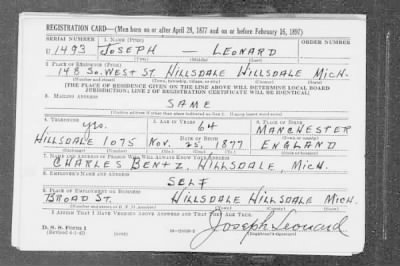 REGISTRATION CARD—(Men born on or after April 28, 1877 and on or before February 16, 1897)
SERIAL NUMBER 1. NAME (Print) ORDER NUMBER
U 1493 JOSEPH — LEONARD
(First) (Middle) (Last)
2. PLACE OF RESIDENCE (Print)
148 SO. WEST ST. HILLSDALE HILLSDALE MICH.
(Number and street) (Town, township, village, or city) (County) (State)
[THE PLACE OF RESIDENCE GIVEN ON THE LINE ABOVE WILL DETERMINE LOCAL BOARD
JURISDICTION; LINE 2 OF REGISTRATION CERTIFICATE WILL BE IDENTICAL]
3. MAILING ADDRESS
SAME
[Mailing address if other than place indicated on line 2. If same insert word same]
4. TELEPHONE 5. AGE IN YEARS 6. PLACE OF BIRTH
yes. 64 MANCHESTER
DATE OF BIRTH (Town or county)
HILLSDALE 1075 NOV. 25, 1877 ENGLAND
(Exchange) (Number) (Mo.) (Day) (Yr.) (State or country)
7. NAME AND ADDRESS OF PERSON WHO WILL ALWAYS KNOW YOUR ADDRESS
CHARLES BENTZ, HILLSDALE, MICH.
8. EMPLOYER'S NAME AND ADDRESS
SELF
9. PLACE OF EMPLOYMENT OR BUSINESS
BROAD ST. HILLSDALE HILLSDALE MICH.
(Number and street or R. F. D. number) (Town) (County) (State)
I AFFIRM THAT I HAVE VERIFIED ABOVE ANSWERS AND THAT THEY ARE TRUE.
D. S. S. Form 1
Joseph Leonard
(Registrant's signature)